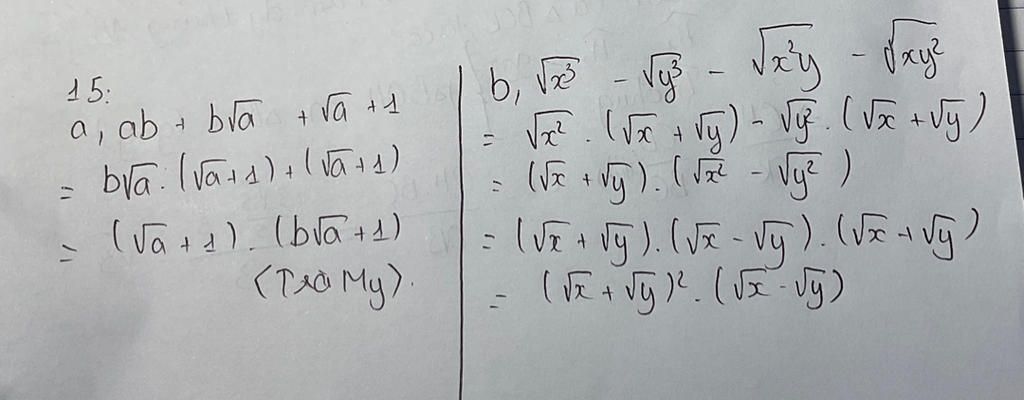 15:
a, ab + b√a + √a + 1
= b√a . (√a + 1) + (√a + 1)
= (√a + 1) . (b√a + 1)
(Trà My).
b, √x³ - √y³ - √x²y - √xy²
= √x² . (√x + √y) - √y² . (√x + √y)
= (√x + √y) . (√x² - √y²)
= (√x + √y) . (√x - √y) . (√x + √y)
= (√x + √y)² . (√x - √y)